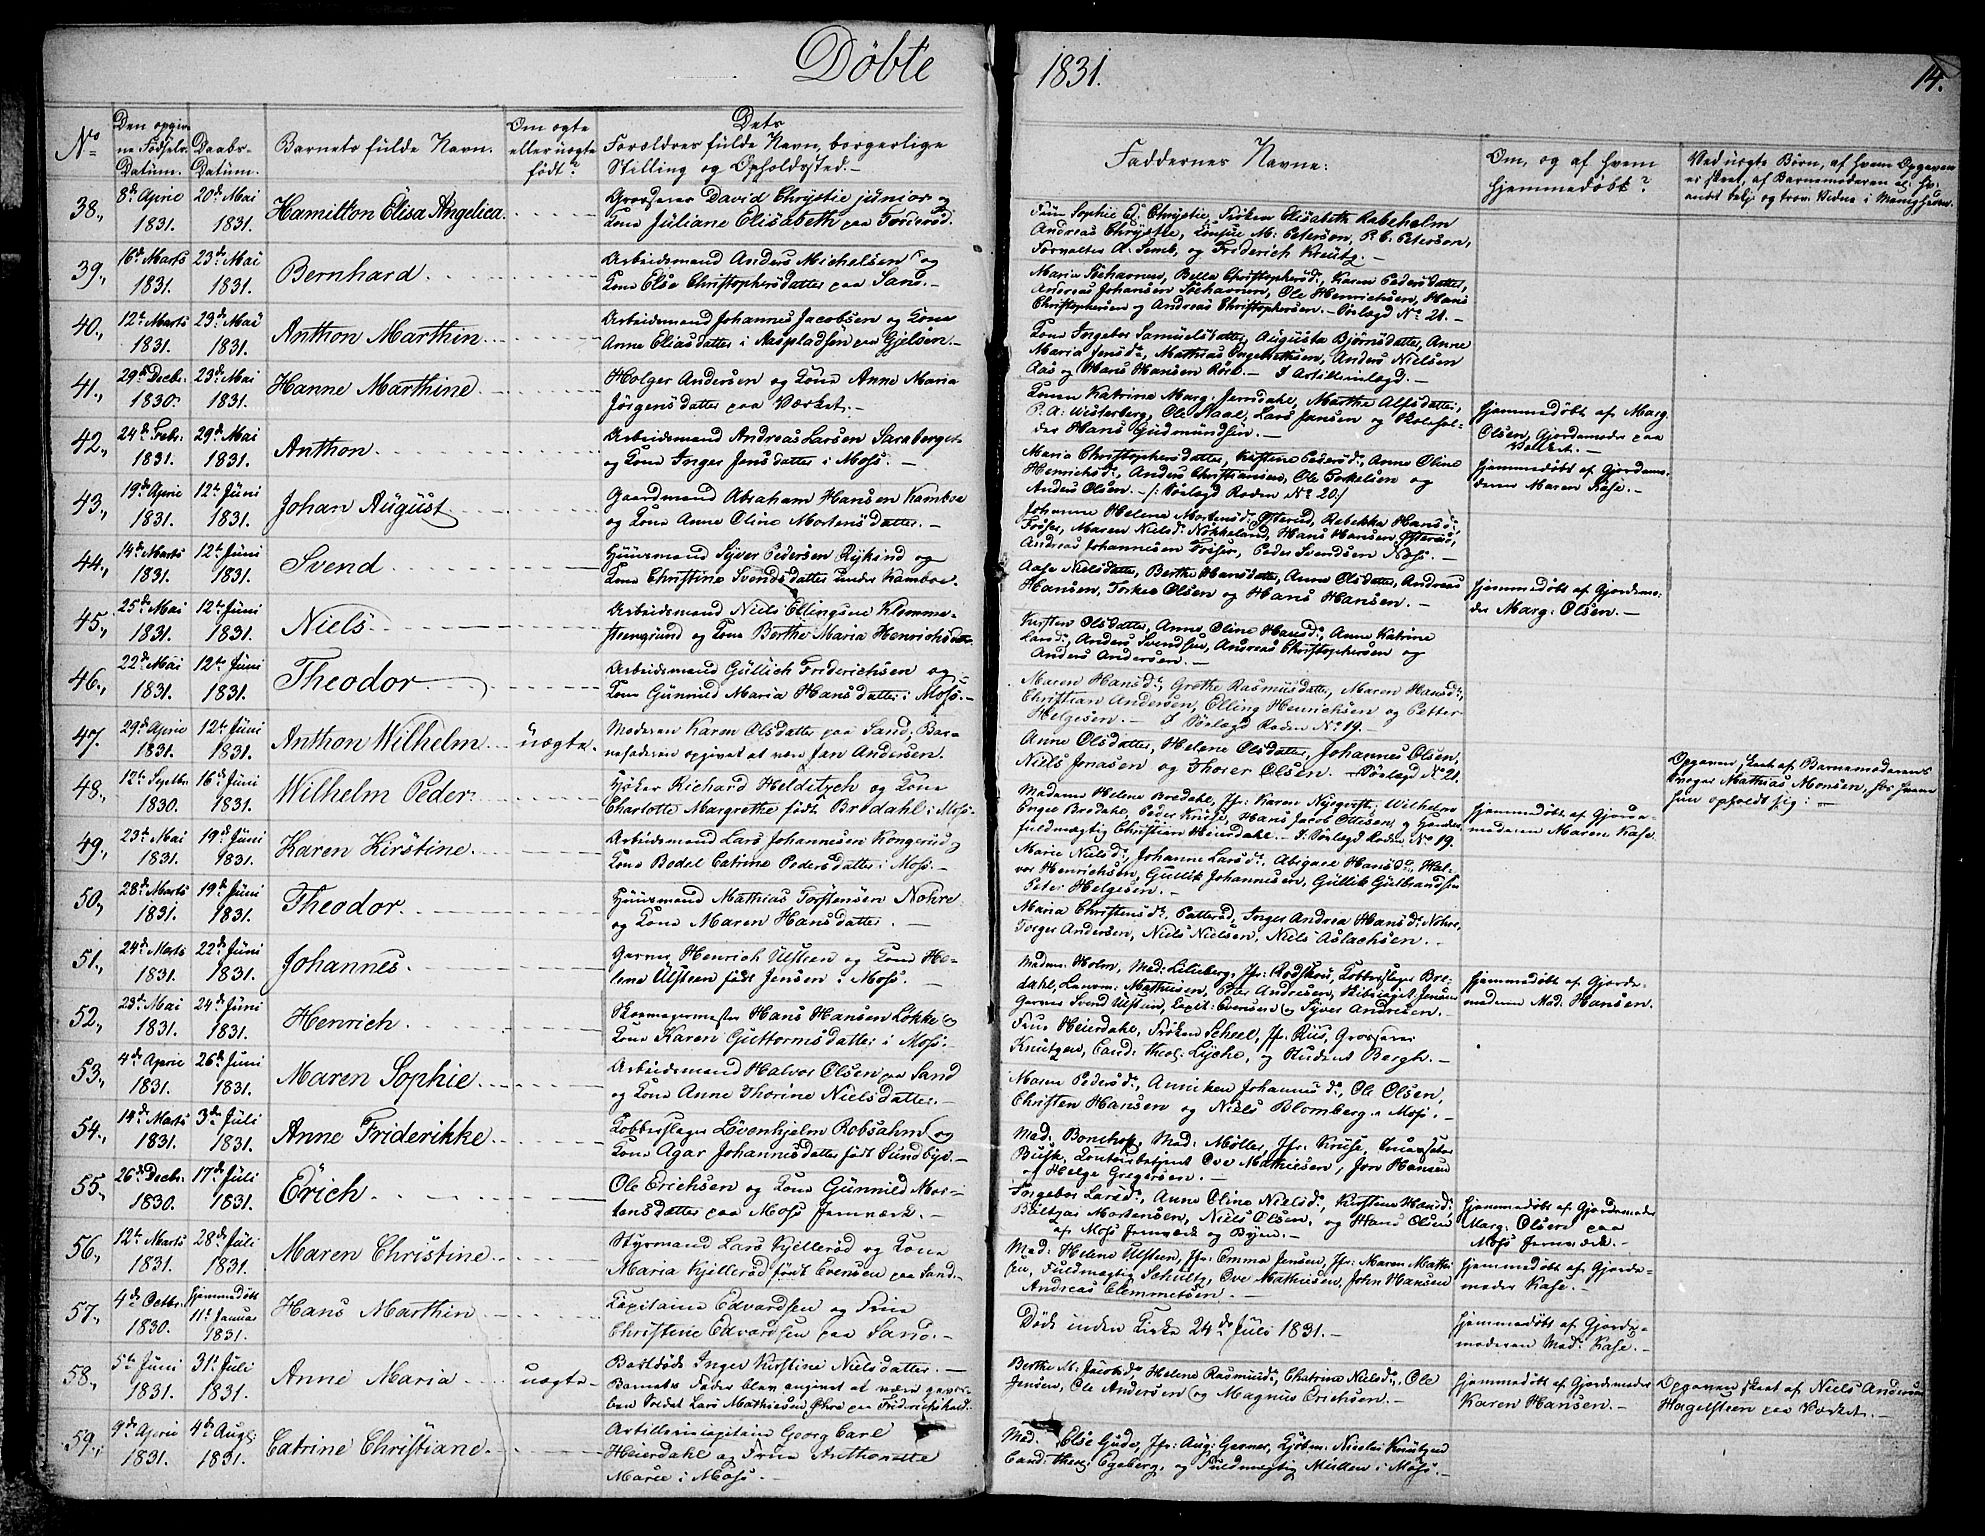 Döbte
1831.
14.
No
Den opgiv-
ne Födsels-
Datum.
Daabs-
Datum.
Barnets fulde Navn.
Om ægte
eller uægte
födt?
Dets
Forældres fulde Navn, borgerlige
Stilling og Opholdssted.
Faddernes Navne.
Om, og af hvem
hjemmedöbt?
Ved uægte Börn, af hvem Opgaven
er skeet, af Barnemoderen el:
andet
38., 8de April 20de Mai Hamilton Elisa Angelica.
1831. 1831.
Grosserer David Chrystie junior og
Kone Juliane Elisabeth paa
Frue Sophie El. Chrystie, Fröken Elisabeth Rabeholm
Andreas Chrystie, M: Petersen, P. C. Petersen,
Forvalter A. Semb, og Friderich Kreutz.
39., 16de Marts 23de Mai Bernhard.
1831. 1831.
Arbeidsmand Anders Michelsen og
Kone Else Christophersdatter paa Sand.
Maria Bella Christophersd:, Karen Pedersdatter,
Andreas Johansen Ole Henrichsen, Hans
Christophersen og Andreas Christophersen. No 21.
40., 12te Marts 23de Mai Anthon Marthin.
1831. 1831.
Arbeidsmand Johannes Jacobsen og Kone
Anne Eliasdatter i paa Gjelsen.
Kone Ingebor Samuelsdatter, Augusta Björnsdatter, Anne
Maria Jensda, Mathias Engebrethsen, Anders Nielsen
Aas og Hans Hansen
41., 29de Decbr. 23de Mai Hanne Marthine
1830. 1831.
Holger Andersen og Kone Anne Maria
Jörgensdatter paa Værket.
Konen Katrine Marg: Marthe Alfsdatter,
P. A. Westerberg, Ole Maae, Lars Jansen og Skolehol-
der Hans Gudmundsen.
hjemmedöbt af Marg
Olsen, Gjordemoder paa
Værket.
42., 24de Febr. 29de Mai Anthon
1831. 1831.
Arbeidsmand Andreas Larsen
og Kone Inger Jensdatter i Moss.
Maria Christophersdatter, Kirstine Pedersd:, Anne Oline
Henrichsd:, Anders Christiansen, Ole Torkelsen og
Anders Olsen. Roden No 20.
hjemmedöbt af Gjordemo-
deren Maren Kase.
43., 19de April 12te Juni Johan August.
1831. 1831.
Gaardmand Abraham Hansen Kamboe
og Kone Anne Oline Mortensdatter.
Johanne Helene Mortensd: Rebekka Hansd:
Maren Nielsd: Nökkeland, Hans Hansen
Andreas Johannesen Peder Svendsen
44., 14de Marts 12te Juni Svend
1831. 1831.
Huusmand Syver Pedersen og
Kone Christine Svendsdatter under Kamboe.
Aase Nielsdatter, Berthe Hansdatter, Anne Olsdatter, Andreas
Hansen, Torkel Olsen og Hans Hansen.
hjemmedöbt af Gjordemo-
der Marg: Olsen.
45., 25de Mai 12te Juni Niels
1831. 1831.
Arbeidsmand Niels Ellingsen Klomme-
steengrund og Kone Berthe Maria Henrichsdatter
Kirsten Olsdatter, Anne Oline Hansd:, Anne Katrine
Larsd:, Anders Svendsen, Andreas Christophersen og
Anders Andersen.
46., 22de Mai 12te Juni Theodor
1831. 1831.
Arbeidsmand Gullich Friderichsen og
Kone Gunnild Maria Hansdatter i Moss.
Maren Hansd:, Grethe Rasmusdatter, Maren Hansd:,
Christian Andersen, Elling Henrichsen og Petter
Helgesen. Roden No 19.
47. 29de April 12te Juni Anthon Wilhelm uægte.
1831. 1831.
Moderen Karen Olsdatter paa Sand, Bar-
nefaderen opgivet at være Jan Andersen.
Anne Olsdatter, Helene Olsdatter, Johannes Olsen,
Niels Jonasen og Thorer Olsen. No 21.
Opgaven skeet af Barnemoderens
Mathias Monsen, hos hvem
hun opholdt sig:
48., 12te Septbr. 16de Juni Wilhelm Peder
1830. 1831.
Richard Helditzch og Kone
Charlotte Margrethe födt Bredahl i Moss.
Madame Helene Bredahl, Jfr: Karen Wilhelm
Bredahl, Peder Kruse, Hans Jacob Ottesen og
fuldmægtig Christian Heierdahl. Roden No 19.
hjemmedöbt af Gjorde-
moderen Maren Kase.
49., 23de Mai 19de Juni Karen Kirstine
1831. 1831.
Arbeidsmand Lars Johannesen Kongerud og
Kone Bedel Catrine Pedersdatter i Moss.
Marie Nielsd:, Johanne Larsd:, Abigael Hansd:, Hal-
vor Henrichsen, Gullik Johannesen, Gullik Gulbrandsen
Peter Helgesen.
50., 28de Marts 19de Juni Theodor.
1831. 1831.
Huusmand Mathias Torstensen Nohre
og Kone Maren Hansdatter.
Maria Christensd: Patteröd, Inger Andrea Hansd: Nohre,
Torger Andersen, Niels Nielsen, Niels Aslachsen.
51., 24de Marts 22de Juni Johannes.
1831. 1831.
Garver Henrich Ulstèen og Kone He-
lene Ulsteen födt Jensen i Moss.
Madme Holm, Mad: Lilleberg, Jfr: Kobberslager Bre-
dahl, Mathiesen, Peter Andresen, Jensen
Garver Svend Ulsteen, Evensen og Syver Andresen.
hjemmedöbt af Gjorde-
moderen Mad. Hansen.
52., 23de Mai 24de Juni Henrich
1831. 1831.
Skomagermester Hans Hansen Lökke og
Kone Karen Guttormsdatter i Moss.
Frue Heierdahl, Fröken Scheel, Jfr: Rus, Grosserer
Knutzen, Cand: Theol: Lyche, og Student Bergh.
53., 4de April 26de Juni Maren Sophie
1831. 1831.
Arbeidsmand Halvor Olsen paa Sand
og Kone Anne Thorine Nielsdatter.
Maren Pedersd:, Anniken Johannesd:, Ole Olsen,
Christen Hansen og Niels Blomberg i Moss.
54., 14de Marts 3de Juli Anne Friderikke
1831. 1831.
Kobberslager Lövenhjelm Robsahm og
Kone Agar Johannesdatter födt Sundbye.
Mad: Mad: Mölle, Jfr: Kruse,
Busk, Contoirbetjent Ove Mathiesen, Jörn Hansen
og Helge Gregersen.
55., 26de Decbr. 17de Juli Erich
1830. 1831.
Ole Erichsen og Kone Gunnild Mor-
tensdatter paa Moss Jernværk.
Ingebor Larsd:, Anne Oline Nielsd:, Kirstine Hansd:
Baltzar Mortensen, Niels Olsen, og Hans Olsen
af Moss Jernværk og Byen.
hjemmedöbt af Gjordemoder
Marg: Olsen paa
Moss Jernværk.
56., 12te Marts 28de Juli Maren Christine
1831. 1831.
Styrmand Lars Kjelleröd og Kone
Maria Kjelleröd födt Evensen paa Sand.
Mad: Helene Ulsteen, Jfr: Emma Jensen, Jfr: Maren Mathi
sen, Fuldmægtig Schultz, Ove Mathiesen, John Hansen
Andreas Clemmetsen.
hjemmedöbt af Gjorde-
moder Kase.
57., 4de Octbr. hjemmedöbt Hans Marthin
1830. 11te Januar
1831.
Kapitaine Edvardsen og Frue
Christine Edvardsen paa Sand.
Döde inden Kirke 24de Juli 1831.
hjemmedöbt af Gjorde-
moderen Mad: Kase.
58., 5te Juni 31te Juli Anne Maria uægte
1831. 1831.
Inger Kirstine Nielsdatter.
Barnets Fader blev angivet at være gever-
ben Soldat Lars Mathiesen paa Fridrichshald.
Berthe M: Jacobsda, Helene Rasmusd:, Chatrine Nielsd:, Ole
Jensen, Ole Andersen og Magnus Erichsen.
hjemmedöbt af Gjordemoder
Karen Hansen.
Opgaven skeet af Niels Andersen
Hagelsteen paa Værket.
59., 9de April 4de Aug: Catrine Christiane.
1831. 1831.
Artillericapitain Georg Carl
Heierdahl og Frue Anthonette
Marie i Moss.
Mad. Else Gude, Jfr: Aug: Garner, Kjöbm: Nicolai Knutzen
Cand: theol: Egeberg, og Fuldmægtig Müllen i Moss.